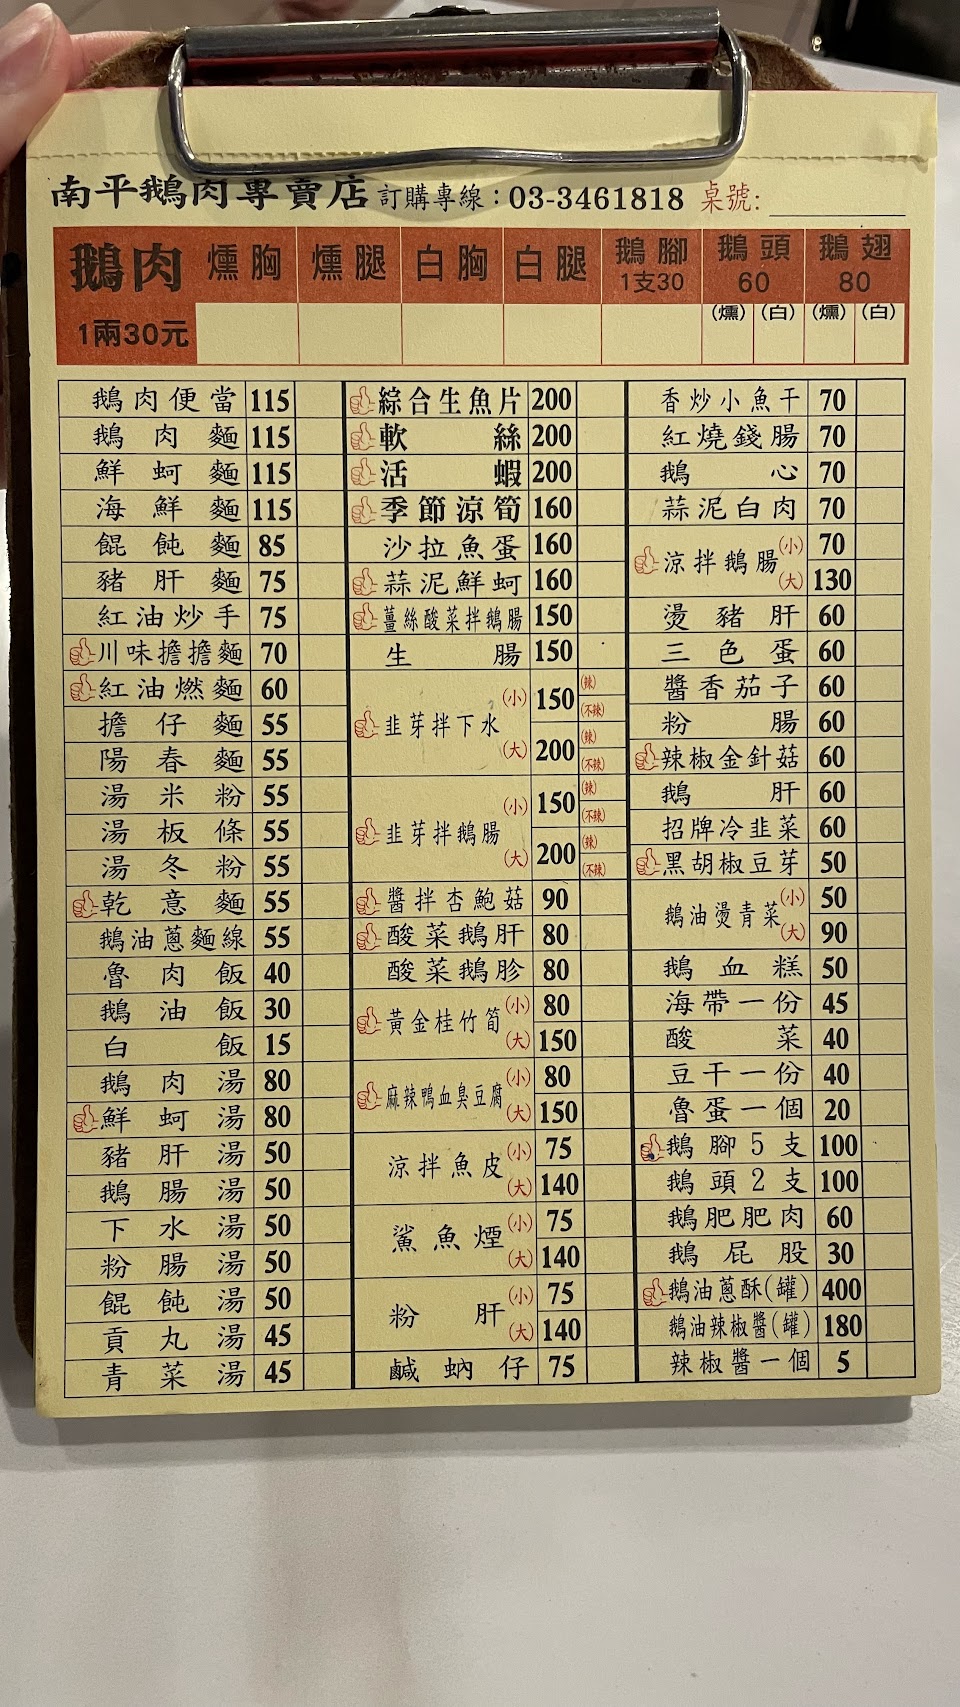 南平鵝肉專賣店 訂購專線：03-3461818 桌號:
鵝肉 燻胸 燻腿 白胸 白腿 鵝腳 1支30 鵝頭 60 鵝翅 80
1兩30元 (燻) (白) (燻) (白)
鵝肉便當 115
鵝肉麵 115
鮮蚵麵 115
海鮮麵 115
餛飩麵 85
豬肝麵 75
紅油炒手 75
川味擔擔麵 70
紅油燃麵 60
擔仔麵 55
陽春麵 55
湯米粉 55
湯板條 55
湯冬粉 55
乾意麵 55
鵝油蔥麵線 55
魯肉飯 40
鵝油飯 30
白飯 15
鵝肉湯 80
鮮蚵湯 80
豬肝湯 50
鵝腸湯 50
下水湯 50
粉腸湯 50
餛飩湯 50
貢丸湯 45
青菜湯 45
綜合生魚片 200
軟絲 200
活蝦 200
季節涼筍 160
沙拉魚蛋 160
蒜泥鮮蚵 160
薑絲酸菜拌鵝腸 150
生腸 150
韭芽拌下水 (小) 150 (辣) (不辣)
(大) 200 (辣) (不辣)
韭芽拌鵝腸 (小) 150 (辣) (不辣)
(大) 200 (辣) (不辣)
醬拌杏鮑菇 90
酸菜鵝肝 80
酸菜鵝胗 80
黃金桂竹筍 (小) 80
(大) 150
麻辣鴨血臭豆腐 (小) 80
(大) 150
涼拌魚皮 (小) 75
(大) 140
鯊魚煙 (小) 75
(大) 140
粉肝 (小) 75
(大) 140
鹹蚋仔 75
香炒小魚干 70
紅燒錢腸 70
鵝心 70
蒜泥白肉 70
涼拌鵝腸 (小) 70
(大) 130
燙豬肝 60
三色蛋 60
醬香茄子 60
粉腸 60
辣椒金針菇 60
鵝肝 60
招牌冷韭菜 60
黑胡椒豆芽 50
鵝油燙青菜 (小) 50
(大) 90
鵝血糕 50
海帶一份 45
酸菜 40
豆干一份 40
魯蛋一個 20
鵝腳5支 100
鵝頭2支 100
鵝肥肥肉 60
鵝屁股 30
鵝油蔥酥(罐) 400
鵝油辣椒醬(罐) 180
辣椒醬一個 5